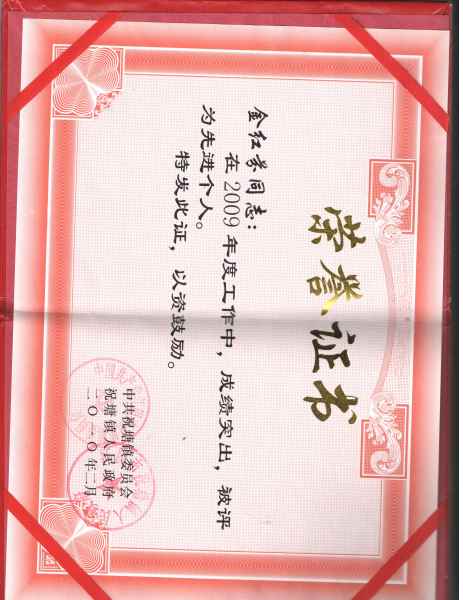 荣誉证书
金红芬同志：
在2009年度工作中，成绩突出，被评
为先进个人。
特发此证，以资鼓励。
中共祝塘镇委员会
祝塘镇人民政府
二〇一〇年二月